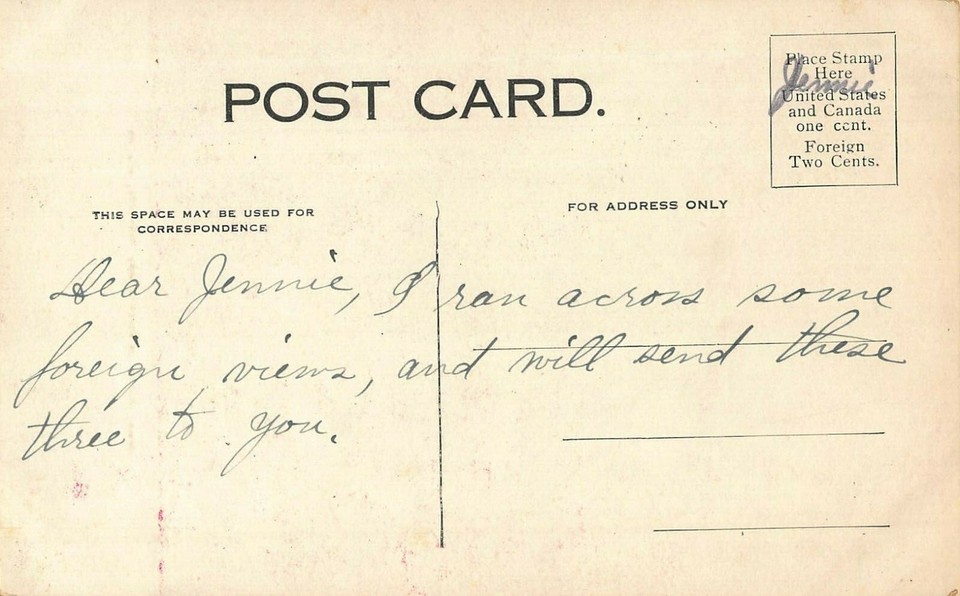 POST CARD.
Place Stamp
Here
United States
and Canada
one cent.
Foreign
Two Cents.
Jennie
THIS SPACE MAY BE USED FOR
CORRESPONDENCE
FOR ADDRESS ONLY
Dear Jennie, I ran across some
foreign views, and will send these
three to you.